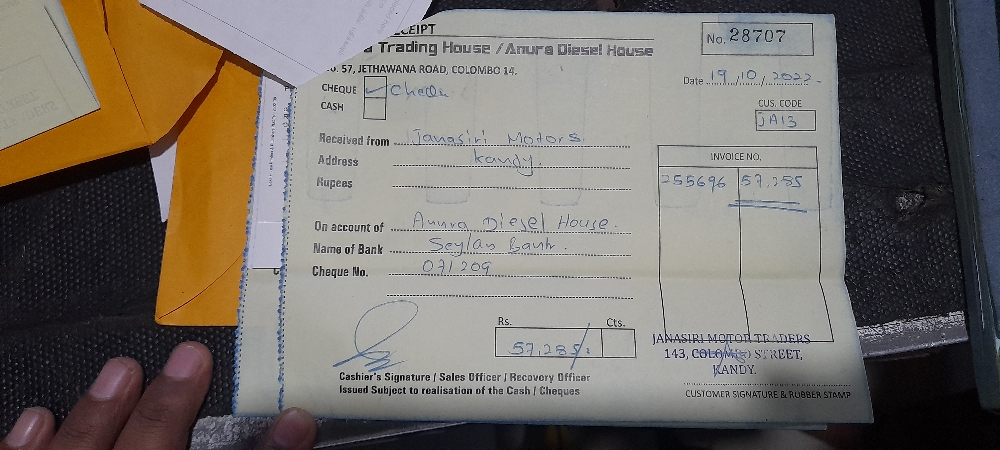 CEIPT
a Trading House / Anura Diesel House
No. 28707
. 57, JETHAWANA ROAD, COLOMBO 14.
Date 19/10/2022.
CHEQUE ✓ Chequ
CASH
CUS. CODE
JA13
Received from Janasiri Motors.
Address Kandy.
Rupees
INVOICE NO.
255696 57,285
On account of Anura Diesel House.
Name of Bank Seylan Bank.
Cheque No. 071209
Rs. Cts.
57,285/.
JANASIRI MOTOR TRADERS
143, COLOMBO STREET,
KANDY.
Cashier's Signature / Sales Officer / Recovery Officer
Issued Subject to realisation of the Cash / Cheques
CUSTOMER SIGNATURE & RUBBER STAMP